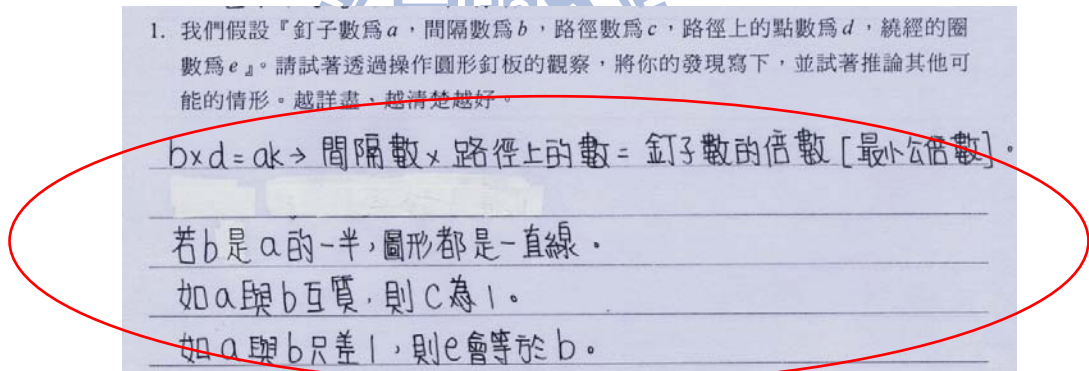 1. 我們假設『釘子數為a，間隔數為b，路徑數為c，路徑上的點數為d，繞經的圈
數為e』。請試著透過操作圓形釘板的觀察，將你的發現寫下，並試著推論其他可
能的情形。越詳盡、越清楚越好。
b×d=ak→間隔數×路徑上的數=釘子數的倍數[最小公倍數]。
若b是a的一半，圖形都是一直線。
如a與b互質，則C為1。
如a與b只差1，則e會等於b。